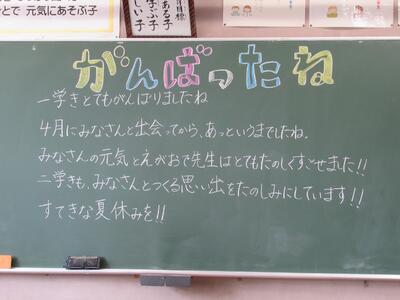 とで 元気にあそぶ子
がんばったね
一学きとてもがんばりましたね
4月にみなさんと出会ってから、あっというまでしたね。
みなさんの元気とえがおで先生はとてもたのしくすごせました!!
二学きも、みなさんとつくる思い出をたのしみにしています!!
すてきな夏休みを!!